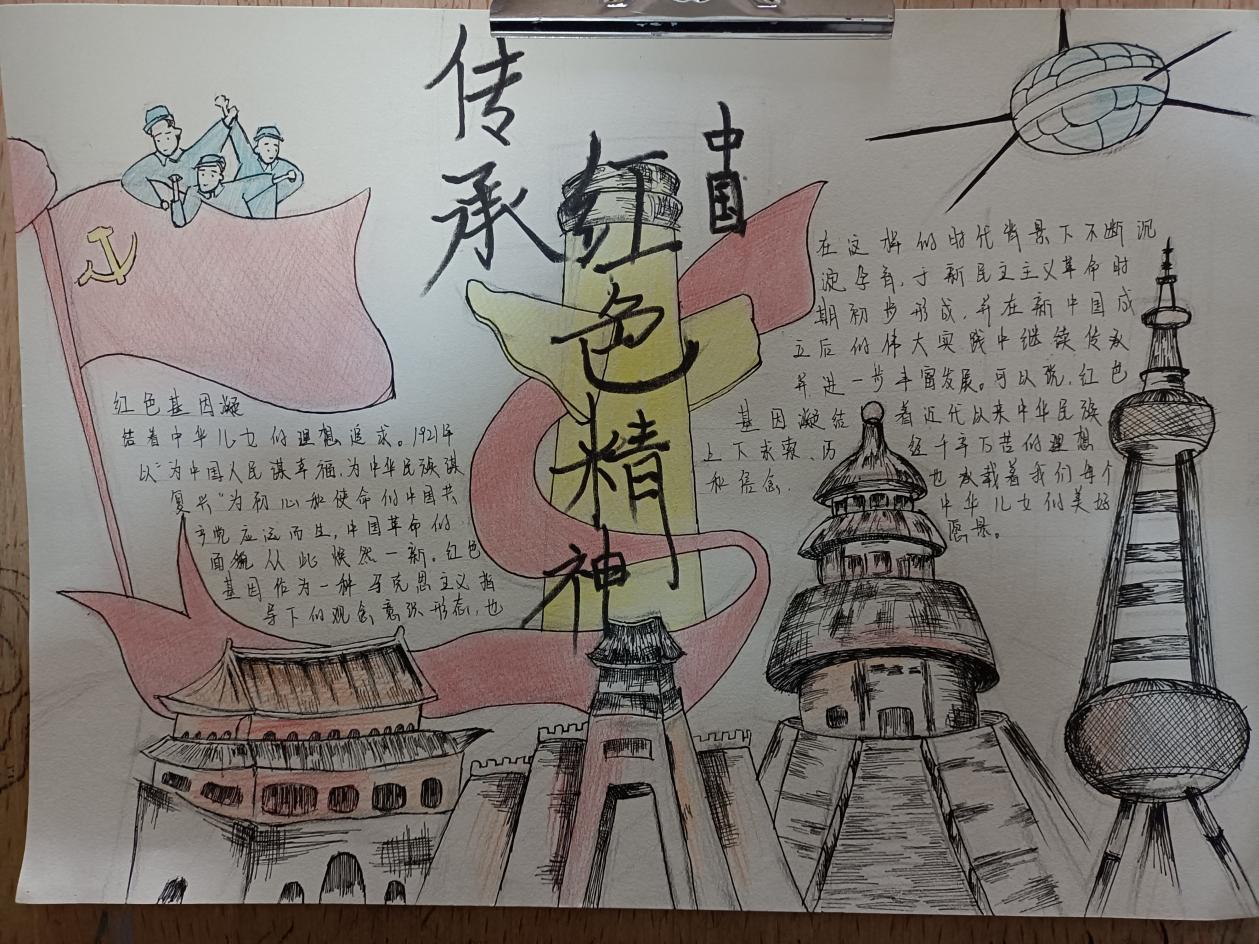 传承
红色精神
中国
红色基因凝
结着中华儿女的理想追求。1921年
以“为中国人民谋幸福,为中华民族谋
复兴”为初心和使命的中国共
产党应运而生,中国革命的
面貌从此焕然一新。红色
基因作为一种马克思主义指
导下的观念意识形态,也
在这样的时代背景下不断沉
淀孕育,于新民主主义革命时
期初步形成,并在新中国成
立后的伟大实践中继续传承
并进一步丰富发展。可以说,红色
基因凝结着近代以来中华民族
上下求索、历经千辛万苦的理想
和信念,也承载着我们每个
中华儿女的美好
愿景。